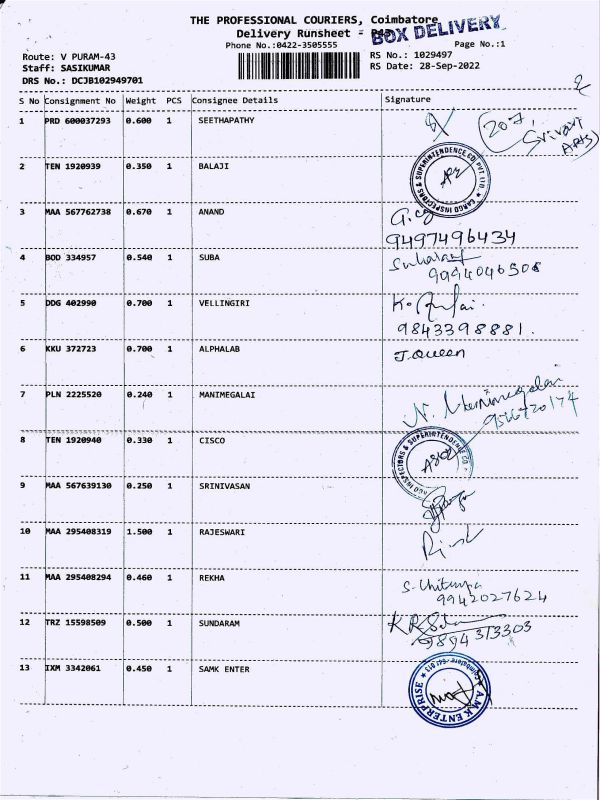 THE PROFESSIONAL COURIERS, Coimbatore
Delivery Runsheet -
BOX DELIVERY
Phone No.:0422-3505555
Page No.:1
Route: V PURAM-43
RS No.: 1029497
Staff: SASIKUMAR
RS Date: 28-Sep-2022
DRS No.: DCJB102949701
S No Consignment No Weight PCS Consignee Details Signature
1 PRD 600037293 0.600 1 SEETHAPATHY
207,
Srivari
APTS
2 TEN 1920939 0.350 1 BALAJI
CARGO INSPECTORS & SUPERINTENDENCE CO. PVT. LTD.
3 MAA 567762738 0.670 1 ANAND
9497496434
4 BOD 334957 0.540 1 SUBA
9994046508
5 DDG 402990 0.700 1 VELLINGIRI
9843398881.
6 KKU 372723 0.700 1 ALPHALAB J.Queen
7 PLN 2225520 0.240 1 MANIMEGALAI
N. Manimegalai
8 TEN 1920940 0.330 1 CISCO
INSPECTORS & SUPERINTENDENCE CO
9 MAA 567639130 0.250 1 SRINIVASAN
10 MAA 295408319 1.500 1 RAJESWARI
11 MAA 295408294 0.460 1 REKHA
9942027624
12 TRZ 15598509 0.500 1 SUNDARAM
9894313303
13 IXM 3342061 0.450 1 SAMK ENTER
S.A.M.K ENTERPRISE